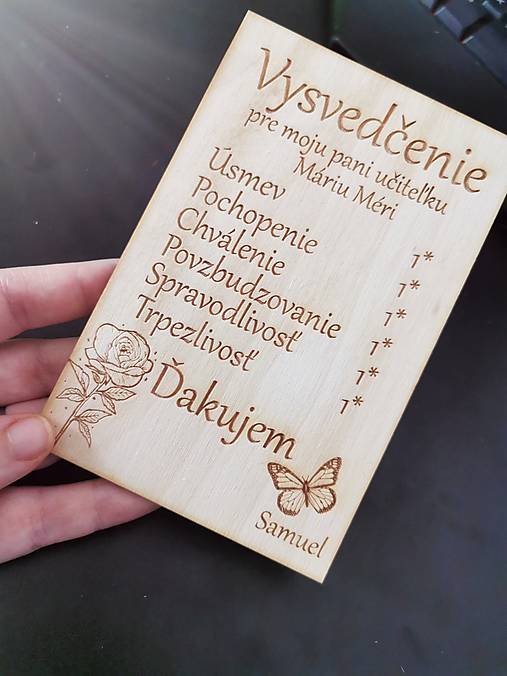 Vysvedčenie
pre moju pani učiteľku
Máriu Méri
Úsmev 1*
Pochopenie 1*
Chválenie 1*
Povzbudzovanie 1*
Spravodlivosť 1*
Trpezlivosť 1*
Ďakujem
Samuel